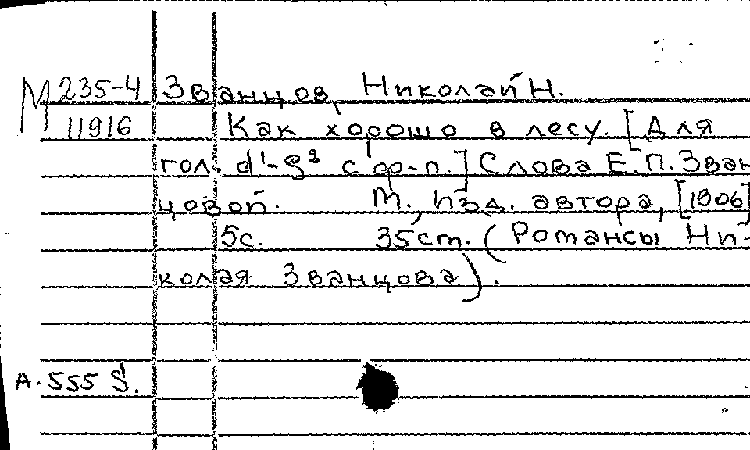 М 235-4 Званцов, Николай Н.
11916 Как хорошо в лесу. [Для
гол. d¹-g² с ф-п.] Слова Е.П. Зван
цовой. М., Изд. автора, [1906]
5с. 35ст. (Романсы Ни-
колая Званцова).
А. 555 §.